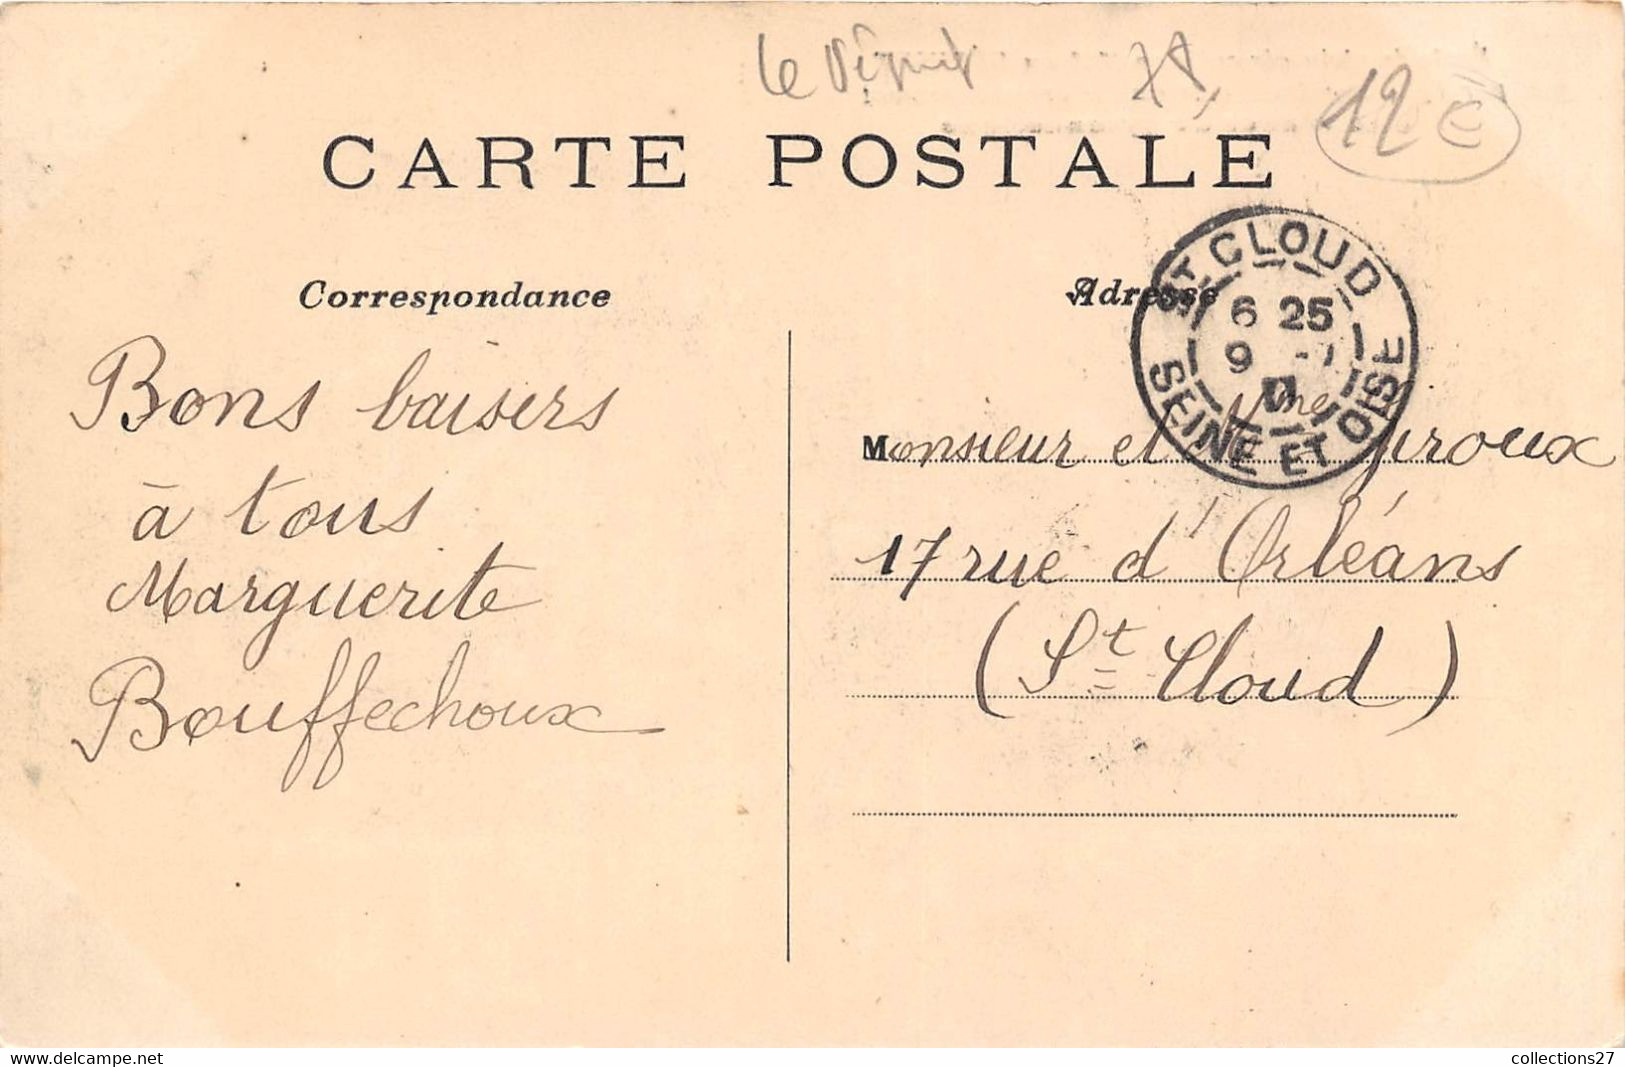 78,
12 €
CARTE POSTALE
Correspondance
Bons baisers
à tous
Marguerite
Bouffechoux
Adresse
ST CLOUD
6 25
9
SEINE ET OISE
Monsieur et Mme Giroux
17 rue d'Orléans
(St Cloud)
collections27